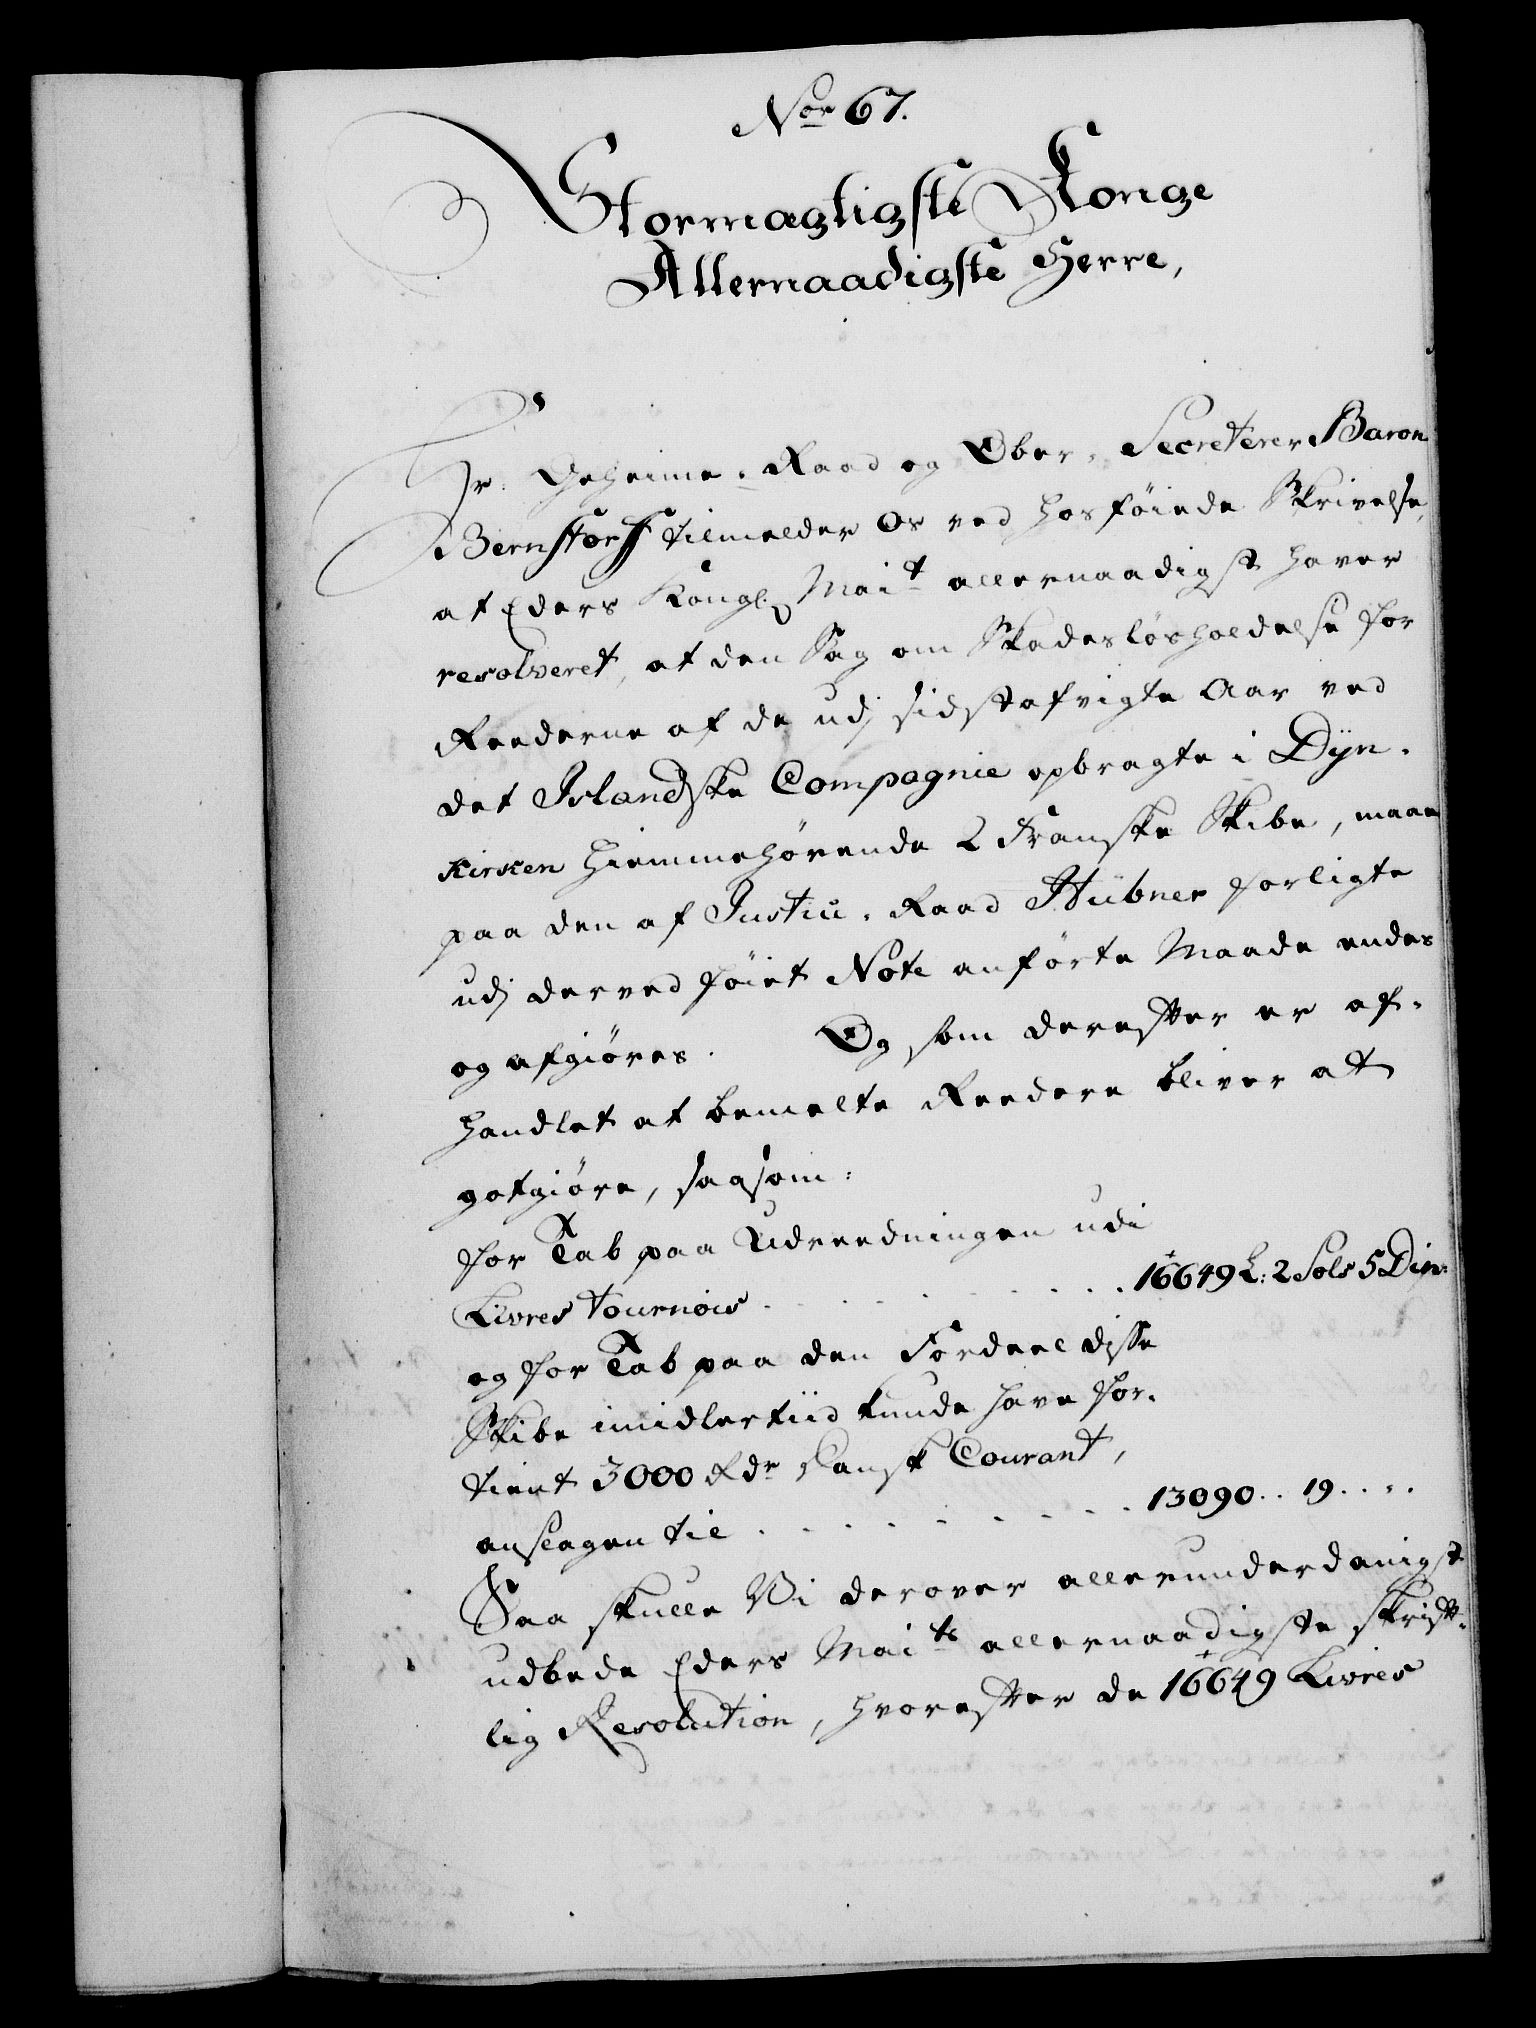 Nor 67.
Stormægtigste Konge
Allernaadigste Herre,
Hr. Geheime-Raad og Ober-Secreterer Baron
Bernstorff tilmelder Os ved hosföiede Skrivelse,
at Eders Kongl. Mait. allernaadigst haver
resolveret, at den Sag om Skadeslösholdelse for
Reederne af de udj sidstafvigte Aar ved
det Islandske Compagnie opbragte i Dyn-
kirken hiemmehörende 2 Franske Skibe, maae
paa den af Justiz-Raad Hübner forligte
udj derved föiet Note anförte Maade endes
og afgiöres. Og som derefter er af-
handlet at bemelte Reedere bliver at
gotgiöre, saasom:
for Tab paa Udreedningen udi
Livres tournois . . . . . . . . 16649 L: 2 Sols 5 Din:
og for Tab paa den Fordeel disse
Skibe imidlertiid kunde have for-
tient 3000 Rdr dansk Courant,
anslagen til . . . . . . . . . 13090 .. 19 ....
Saa skulle Vi derover allerunderdanigst
udbede Eders Maits allernaadigste skrift-
lig Resolution, hvorefter de 16649 Livres